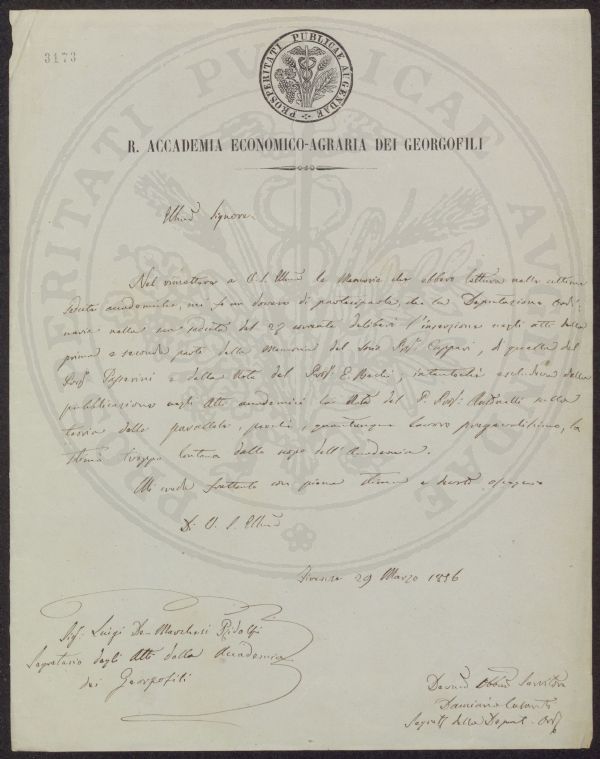 3173
PROSPERITATI PUBLICAE AUGENDAE
R. ACCADEMIA ECONOMICO-AGRARIA DEI GEORGOFILI
Illmo Signore
Nel rimettere a V. S. Illma le Memorie che ebbero lettura nelle ultime
sedute accademiche, mi fo un dovere di parteciparle, che la Deputazione Ordi-
naria nella sua seduta del 27 corrente deliberò l'inserzione negli Atti della
prima e seconda parte della Memoria del Socio Cuppari, di quella del
Prof. Passerini e della Nota del Prof. E. Bechi, intantochè escludeva dalla
pubblicazione negli Atti accademici la Nota del P. Prof. Antonelli sulla
teoria delle parallele, perchè, quantunque lavoro pregevolissimo, lo
stimò troppo lontano dallo scopo dell'Accademia.
Mi creda frattanto con piena stima e
Di V. S. Illma
Firenze 29 Marzo 1856
Sigr. Luigi De-Marchesi Ridolfi
Segretario degli Atti della Accademia
dei Georgofili
Devmo Obbmo Servitore
Damiano Casanti
Segret della Deput. Ord